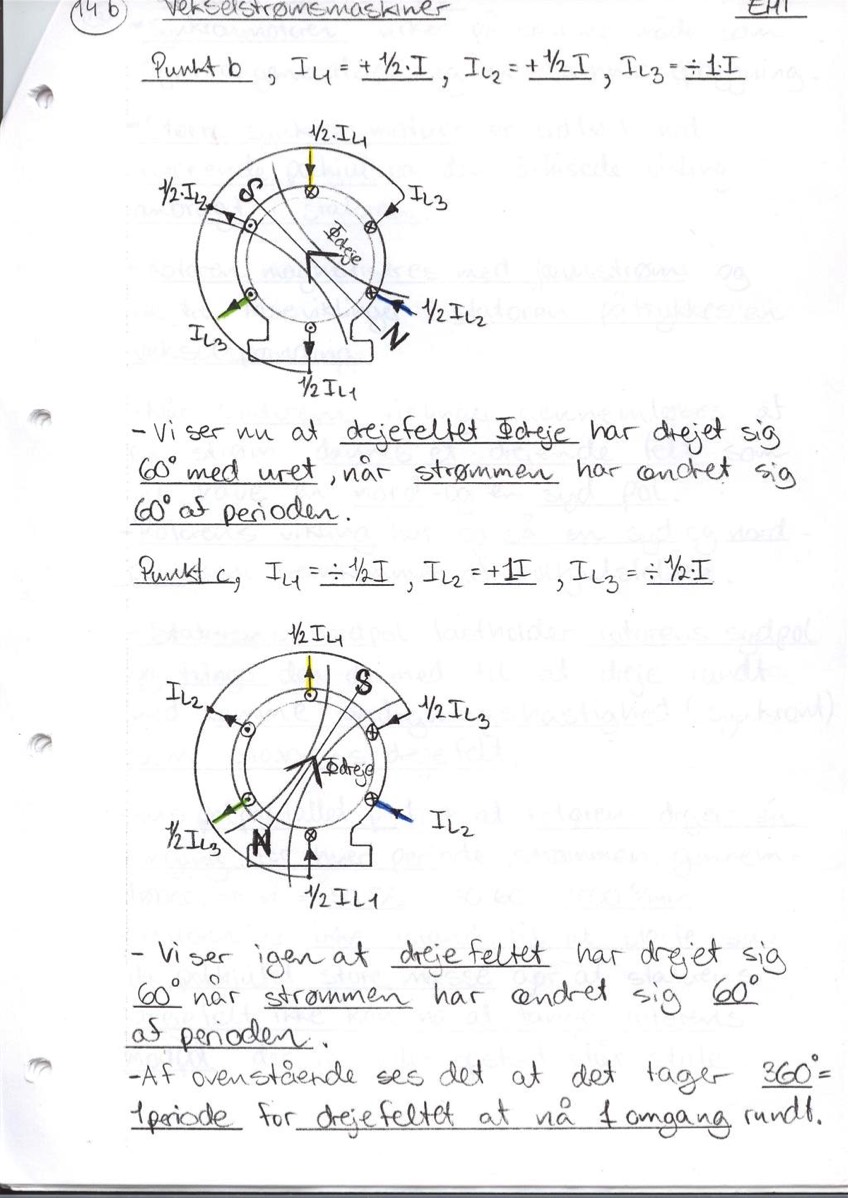 14 b Vekselstrømsmaskiner EM1
Punkt b, IL1 = +½·I, IL2 = +½I, IL3 = ÷1·I
½·IL1
½·IL2
S
IL3
Φdreje
IL3
½IL2
N
½IL1
- Vi ser nu at drejefeltet Φdreje har drejet sig
60° med uret, når strømmen har ændret sig
60° af perioden.
Punkt c, IL1 = ÷½I, IL2 = +1I, IL3 = ÷½·I
½IL1
S
IL2
½IL3
Φdreje
½IL3
N
IL2
½IL1
- Vi ser igen at drejefeltet har drejet sig
60° når strømmen har ændret sig 60°
af perioden.
-Af ovenstående ses det at det tager 360°=
1periode for drejefeltet at nå 1 omgang rundt.